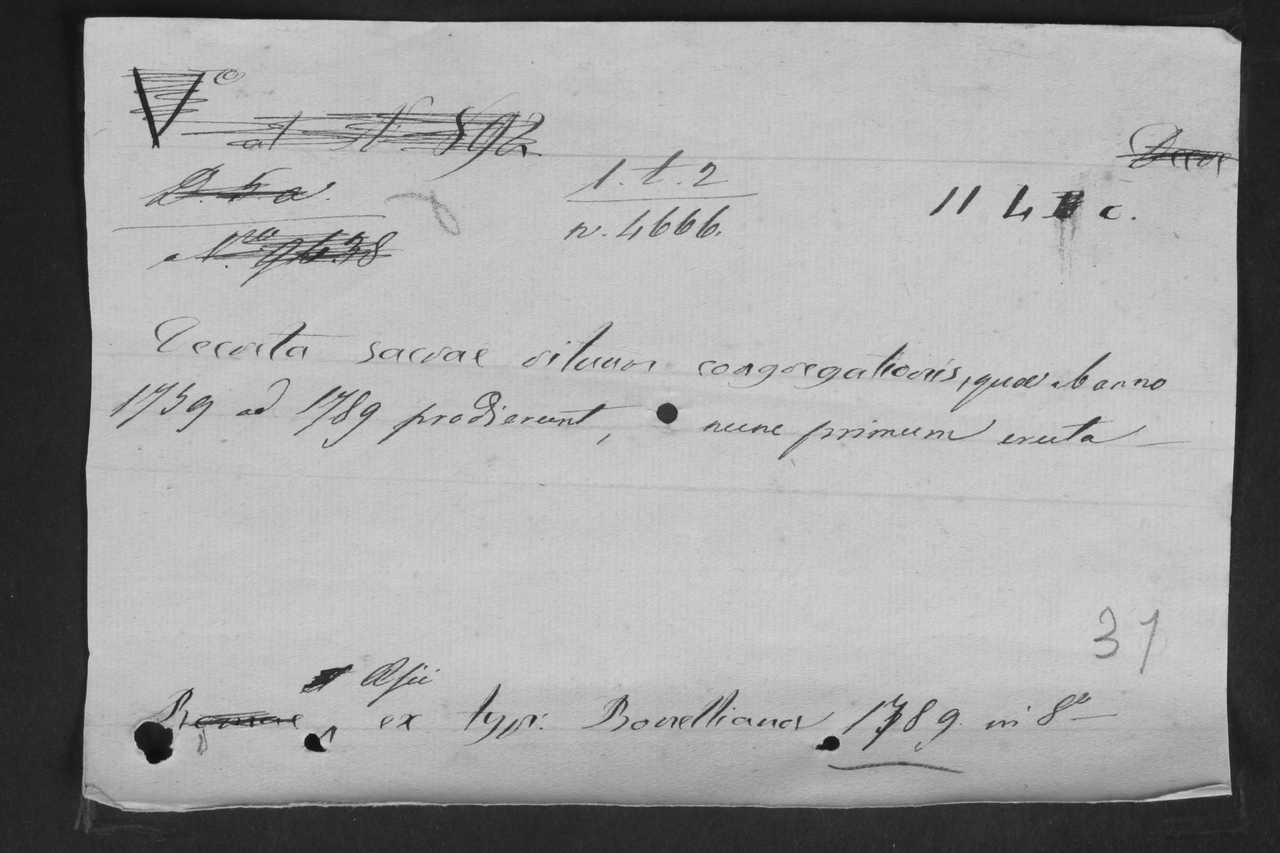 V
1. t. 2
n. 4666.
11 4 c.
Decreta sacrae rituum congregationis, quae ab anno
1759 ad 1789 prodierunt, nunc primum eruta
37
Romae ex typ: Bonelliana 1789 in 8º